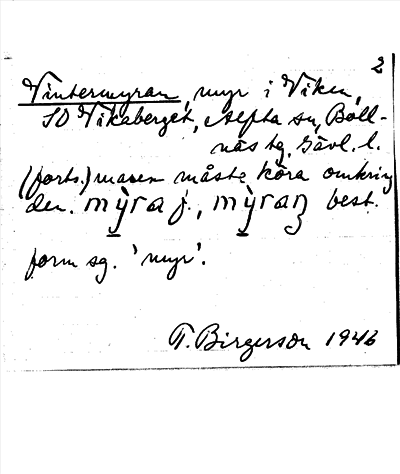 2
Vintermyran, myr i Viken,
SO Vikaberget, Alfta sn, Boll-
näs tg. Gävl. l.
(forts.) manen måste köra omkring
den. mỳra f., mỳraꞥ best.
form sg. 'myr'.
T. Birgerson 1946